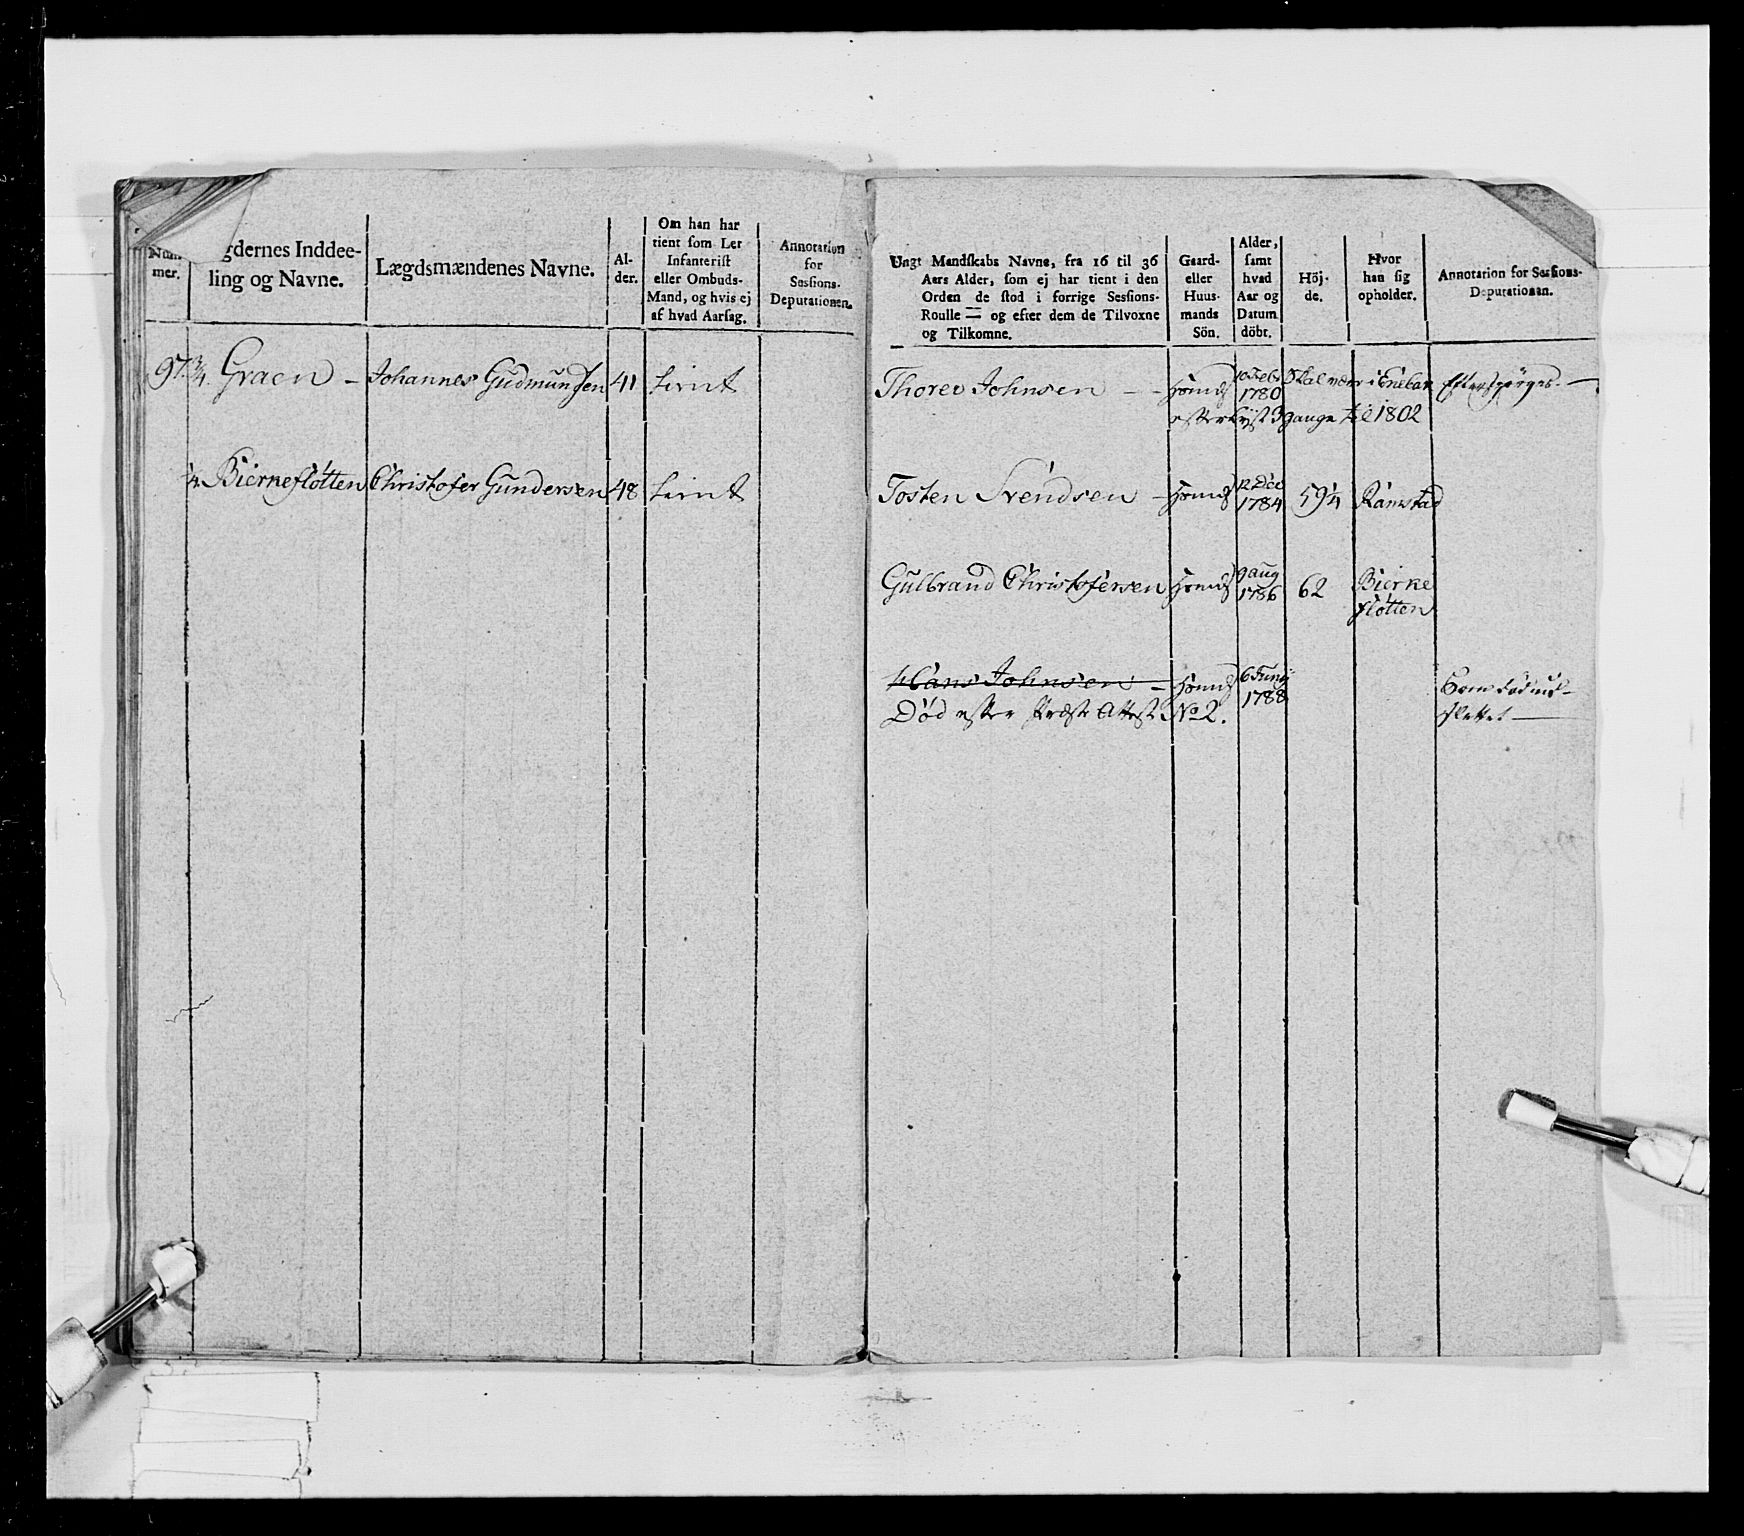 Num-
mer.
gdernes Inddee-
ling og Navne.
Lægdsmændenes Navne.
Al-
der.
Om han har
tient som Let
Infanterist
eller Ombuds-
Mand, og hvis ej
af hvad Aarsag.
Annotation
for
Sessions-
Deputationen.
97. 3/4 Graen - Johannes Gudmundsen 41 tient
1/4 Bierkefløtten Christofer Gundersen 48 tient
Ungt Mandskabs Navne, fra 16 til 36
Aars Alder, som ej har tient i den
Orden de stod i forrige Sessions-
Roulle = og efter dem de Tilvoxne
og Tilkomne.
Gaard-
eller
Huus-
mands
Sön.
Alder,
samt
hvad
Aar og
Datum
döbt.
Höj-
de.
Hvor
han sig
opholder.
Annotation for Sessions-
Deputationen.
Thorer Johnsen - 10 Febr 1780 Skal være i Enebak Efterspørges.
efterlyst 3 gange til 1802
Tosten Svendsen - 12 Dec 1784 59 1/4 Ramstad
Gulbrand Christofersen 9 aug 1786 62 Bierke
fløtten
Hans Johnsen - 6 Junij 1788 Som død ud-
Død efter Præste Attest No 2. slettet